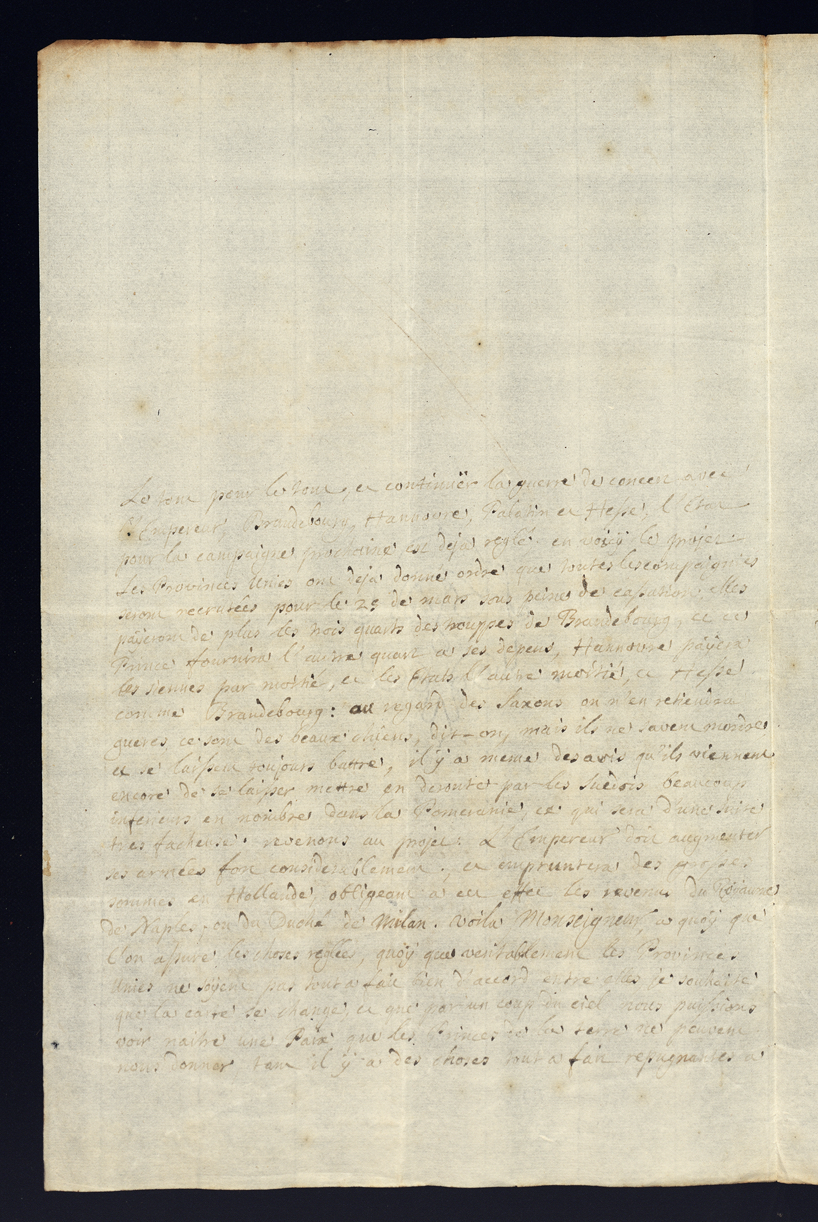 Le tout pour le tout, et continuër la guerre de concert avec
l'Empereur, Brandebourg, Hannovre, Palatin et Hesse, l'Etat
pour la campaigne prochaine est deja reglé. en voicÿ le projet:
Les Provinces Unies ont deja donné ordre que toutes les compaignies
seront recrutées pour le 2e de mars sous peine de cassation, elles
païeront de plus les trois quarts des trouppes de Brandebourg, et ce
Prince fournira l'autre quart a ses depens, Hannovre païera
les siennes par moitié, et les Etats l'autre moitié, et Hesse
comme Brandebourg: au regard des Saxons on n'en retiendra
gueres, ce sont des beaux chiens, dit-on, mais ils ne savent mordre
et se laissent toujours battre, il y a meme des avis qu'ils viennent
encore de se laisser mettre en deroute par les Suedois beaucoup
inferieurs en nombre dans la Pomeranie, ce qui sera d'une suite
tres facheuse. revenons au projet: L'Empereur doit augmenter
ses armées fort considerablement, et empruntera des grosses
sommes en Hollande, obligeant a cet effet les revenus du Roiaume
de Naples, ou du Duché de Milan. voila Monseigneur, a quoÿ que
l'on assure les choses reglées, quoÿ que veritablement les Provinces
Unies ne soÿent pas tout a fait bien d'accord entre elles je souhaite
que la carte se change, et que par un coup du ciel nous puissions
voir naitre une Paix, que les Princes de la terre ne peuvent
nous donner tant il ÿ a des choses tout a fait repugnantes a